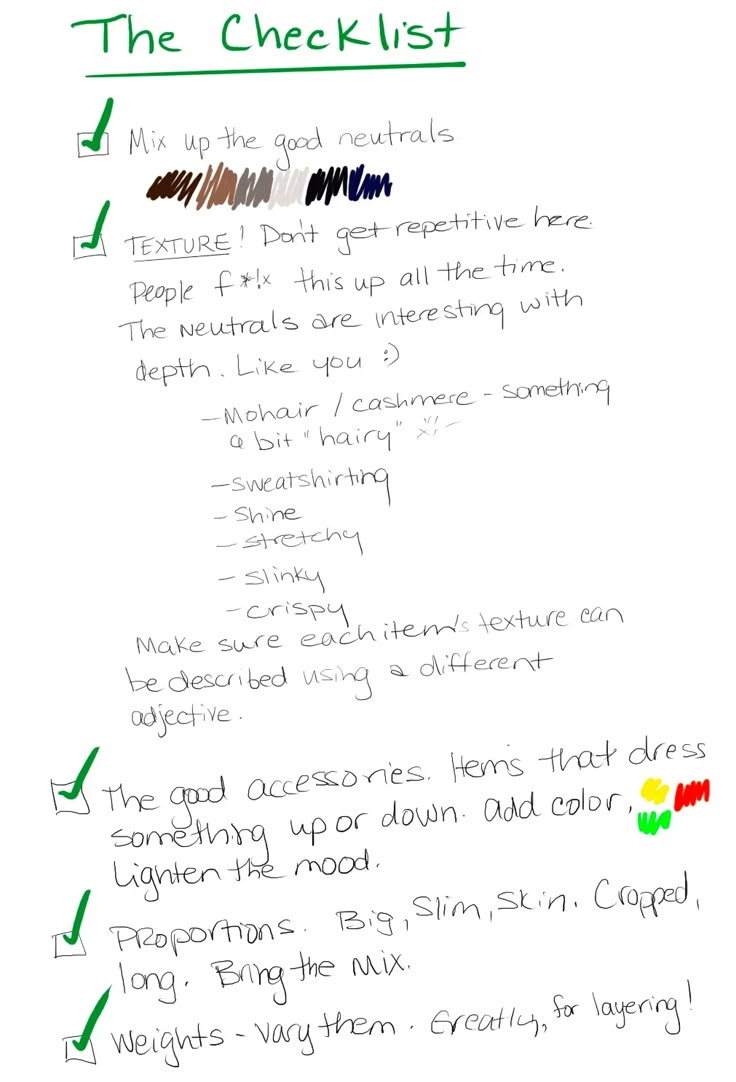 The Checklist
Mix up the good neutrals
TEXTURE! Don't get repetitive here.
People f*!x this up all the time.
The Neutrals are interesting with
depth. Like you :)
- Mohair / cashmere - something
a bit "hairy"
- Sweatshirting
- Shine
- stretchy
- Slinky
- crispy
Make sure each item's texture can
be described using a different
adjective.
The good accessories. Items that dress
something up or down. add color,
Lighten the mood.
Proportions. Big, Slim, Skin. Cropped,
long. Bring the Mix.
Weights - Vary them. Greatly, for layering!